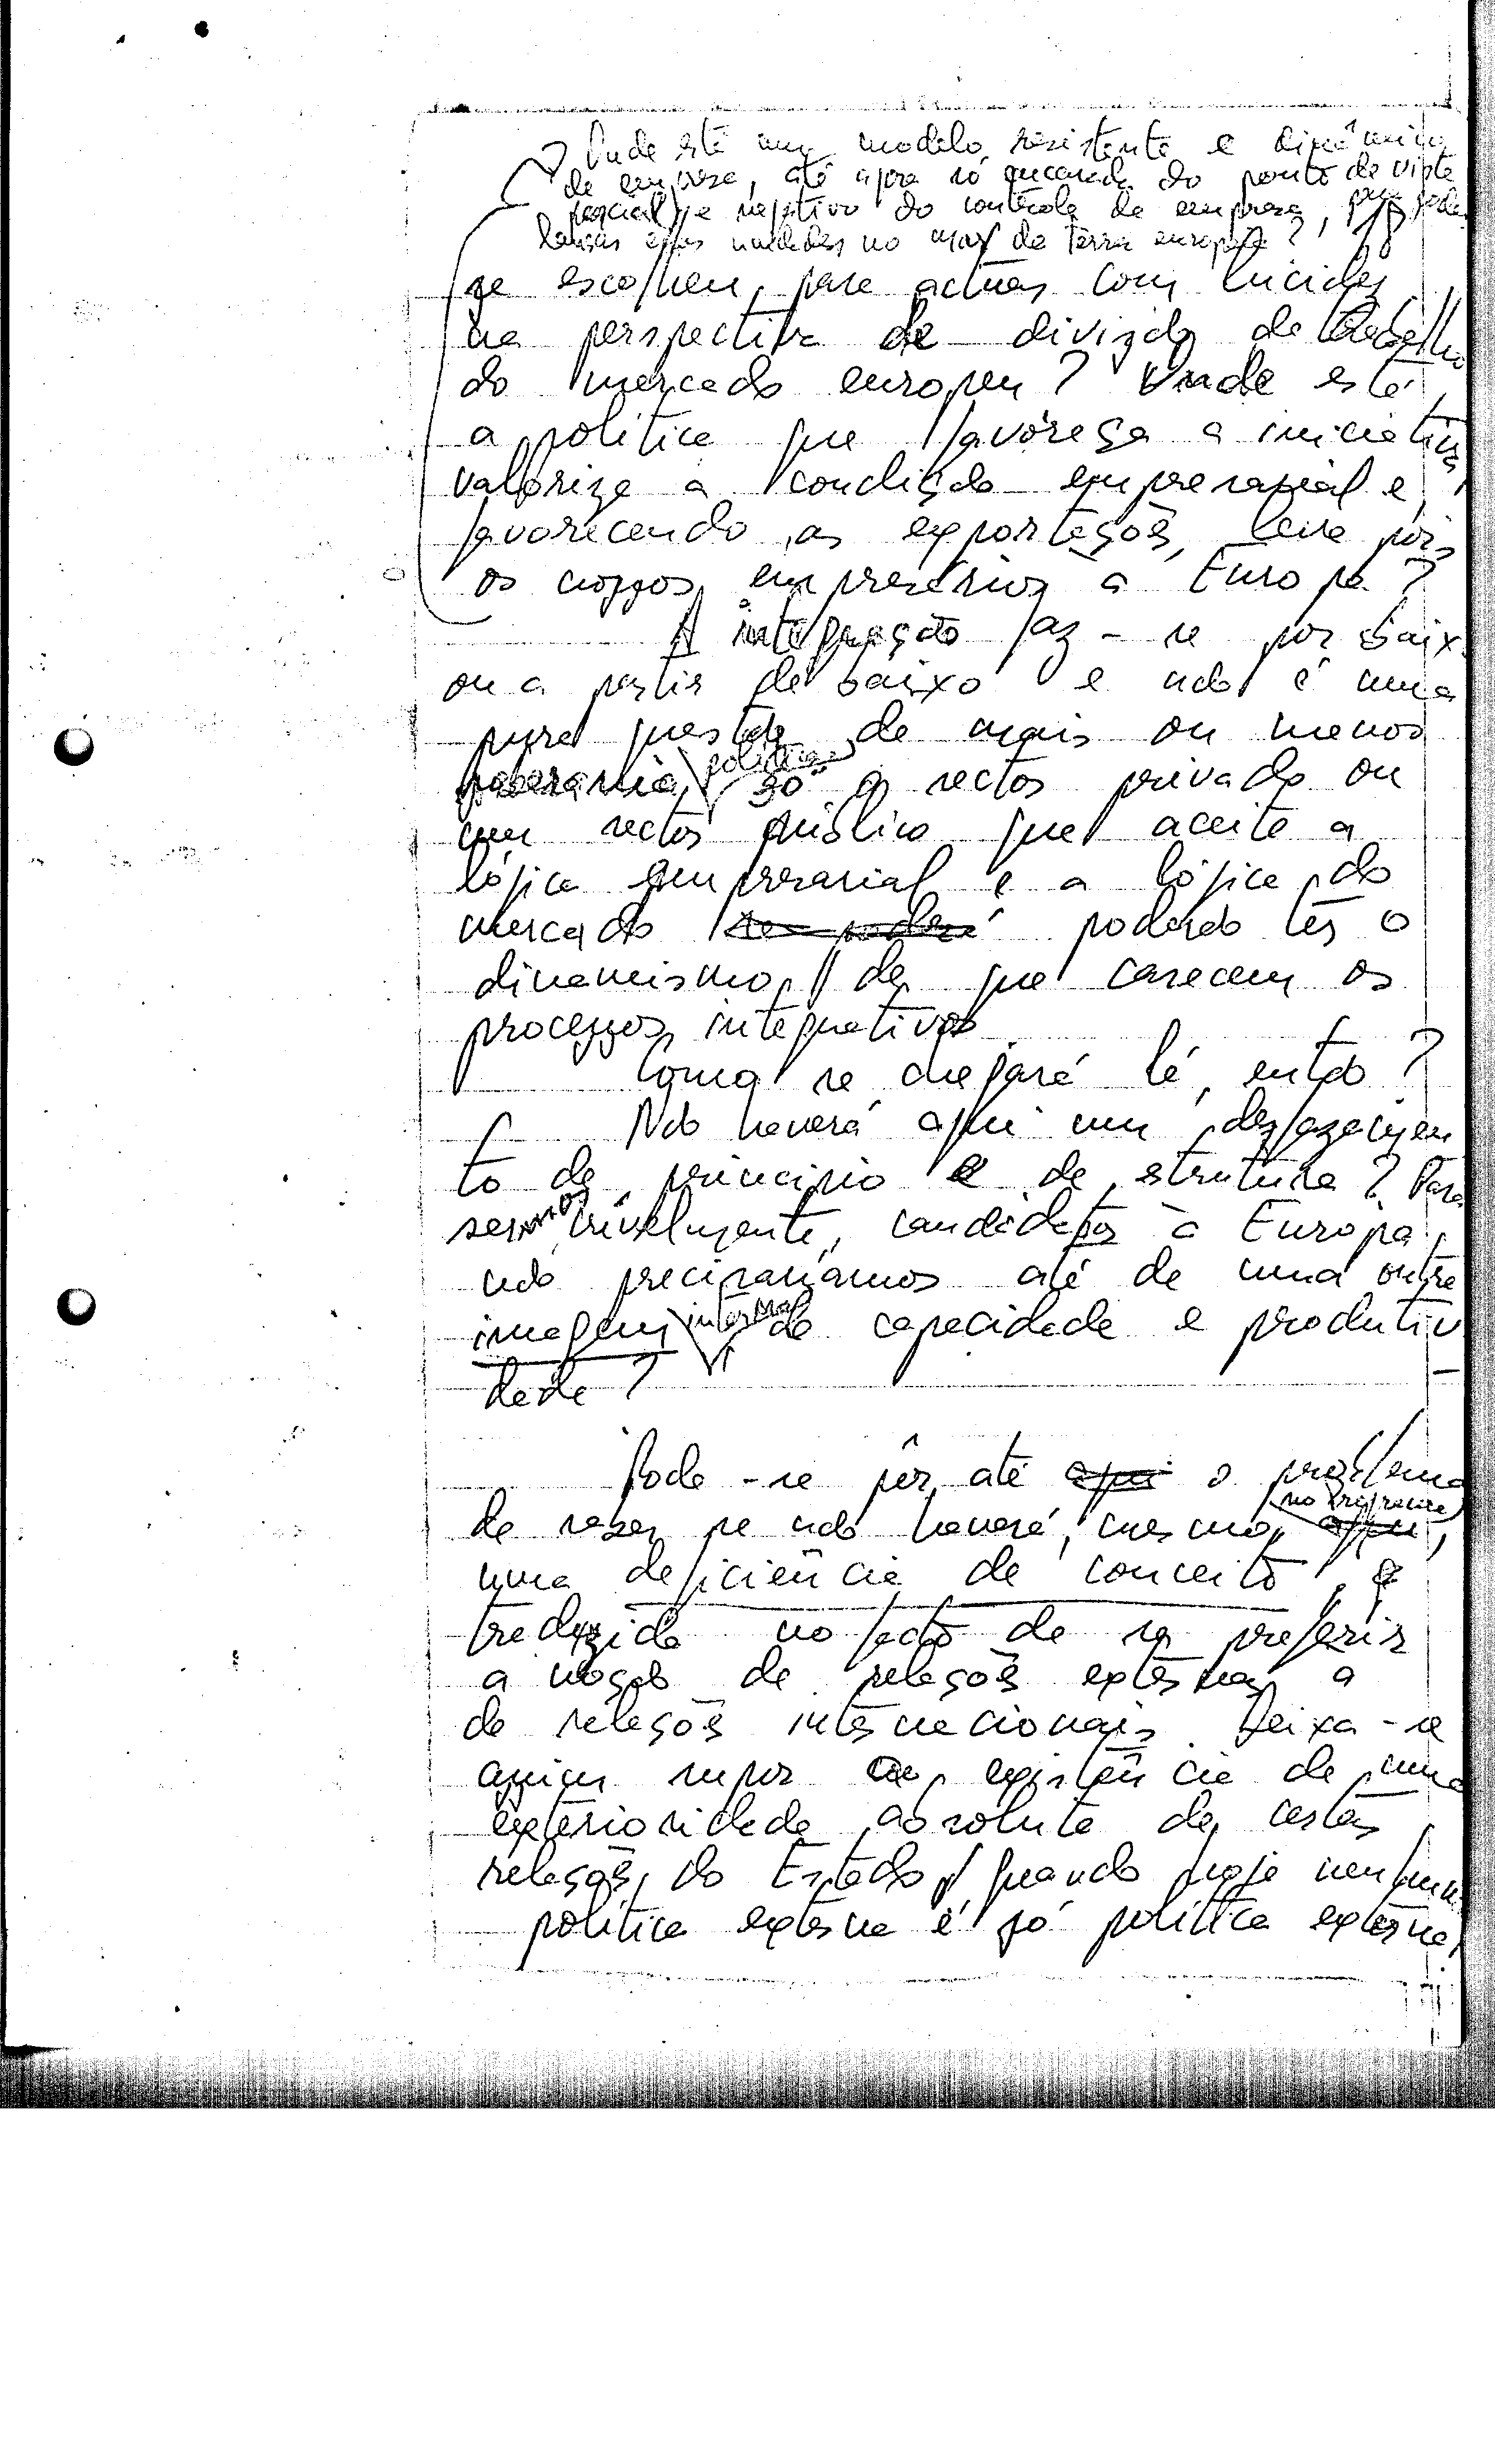 Onde está um modelo resistente e dinâmico
de empresa, até agora só encarada do ponto de vista
parcial e negativo do contrôle de empresa, para poder
lançar essas unidades no mar da terra europeia?
se escolheu, para actuar com lucidez
na perspectiva de divisão de trabalho
do mercado europeu? Onde está
a política que favoreça a iniciativa,
valorize a condição empresarial e,
favorecendo as exportações, leve
os nossos empresários à Europa?
A integração faz-se por baixo
ou a partir de baixo e não é uma
pura questão de mais ou menos
política só o sector privado ou
um sector público que aceite a
lógica empresarial e a lógica do
mercado se poderá poderão ter o
dinamismo de que carecem os
processos integrativos.
Como se chegará lá, então?
Não haverá aqui um desfazamen
to de princípio e de estrutura? Para
sermos, crivelmente, candidatos à Europa,
não precisaríamos até de uma outra
imagem interna de capacidade e produtivi
dade?
Pode-se pôr até aqui o problema
no
de saber se não haverá, mesmo, aqui,
uma deficiência de conceito,
traduzida no facto de se preferir
a noção de relações externas a
de relações internacionais. Deixa-se
assim supor a existência de uma
exterioridade absoluta de certas
relações do Estado, quando hoje nenhuma
política externa é só política externa,